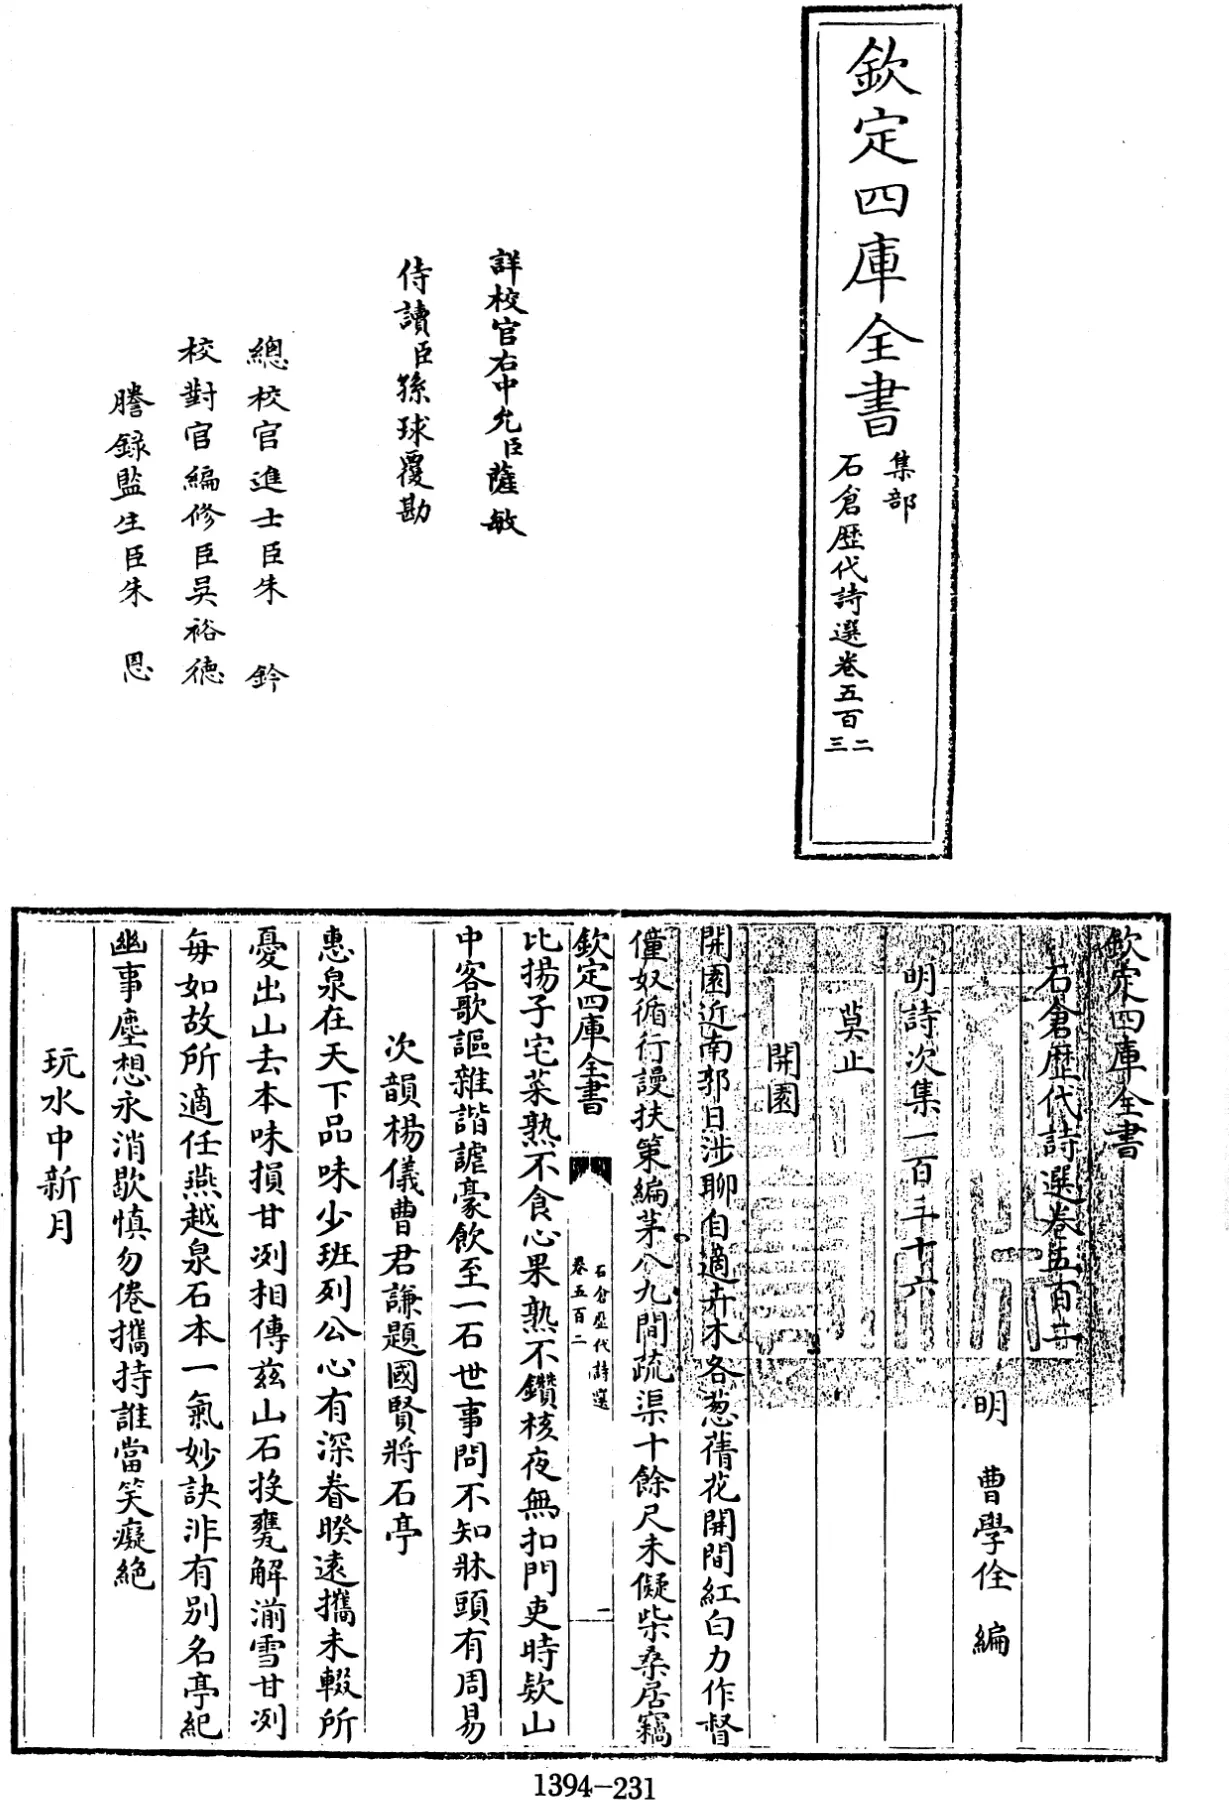 欽定四庫全書
集部
石倉歷代詩選卷五百二
三
詳校官右中允臣薩敏
侍讀臣孫球覆勘
總校官進士臣朱鈐
校對官編修臣吳裕德
謄錄監生臣朱恩
欽定四庫全書
石倉歷代詩選卷五百二
明 曹學佺 編
明詩次集一百三十六
莫止
開園
開園近南郭日涉聊自適卉木各葱蒨花開間紅白力作督
僮奴循行謾扶策編茅八九間疏渠十餘尺未儗柴桑居竊
欽定四庫全書
石倉歷代詩選
卷五百二
一
比揚子宅菜熟不食心果熟不鑽核夜無扣門吏時欵山
中客歌謳雜諧謔豪飲至一石世事問不知牀頭有周易
次韻楊儀曹君謙題國賢將石亭
惠泉在天下品味少班列公心有深眷暌遠攜未輟所
憂出山去本味損甘冽相傳兹山石投甕解湔雪甘冽
每如故所適任燕越泉石本一氣妙訣非有别名亭紀
幽事塵想永消歇慎勿倦攜持誰當笑癡絶
玩水中新月
1394-231